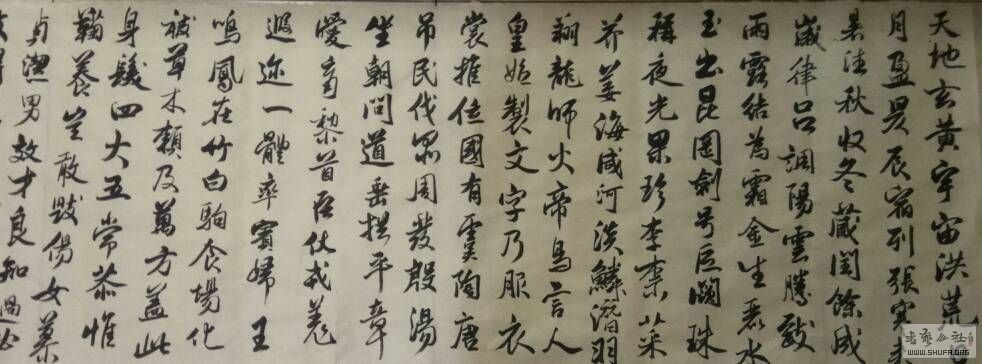 天地玄黃宇宙洪荒
月盈昃辰宿列張寒來
暑往秋收冬藏閏餘成
歲律呂調陽雲騰致
雨露結為霜金生麗水
玉出昆岡劍号巨闕珠
稱夜光果珍李柰菜
芥姜海咸河淡鱗潛羽
翔龍師火帝鳥官人
皇始製文字乃服衣
裳推位國有虞陶唐
吊民伐罪周發殷湯
坐朝問道垂拱平章
愛育黎首臣伏戎羌
遐迩一體率賓歸王
鳴鳳在竹白駒食場化
被草木賴及萬方蓋此
身髮四大五常恭惟
鞠養豈敢毀傷女慕
貞潔男效才良知過必